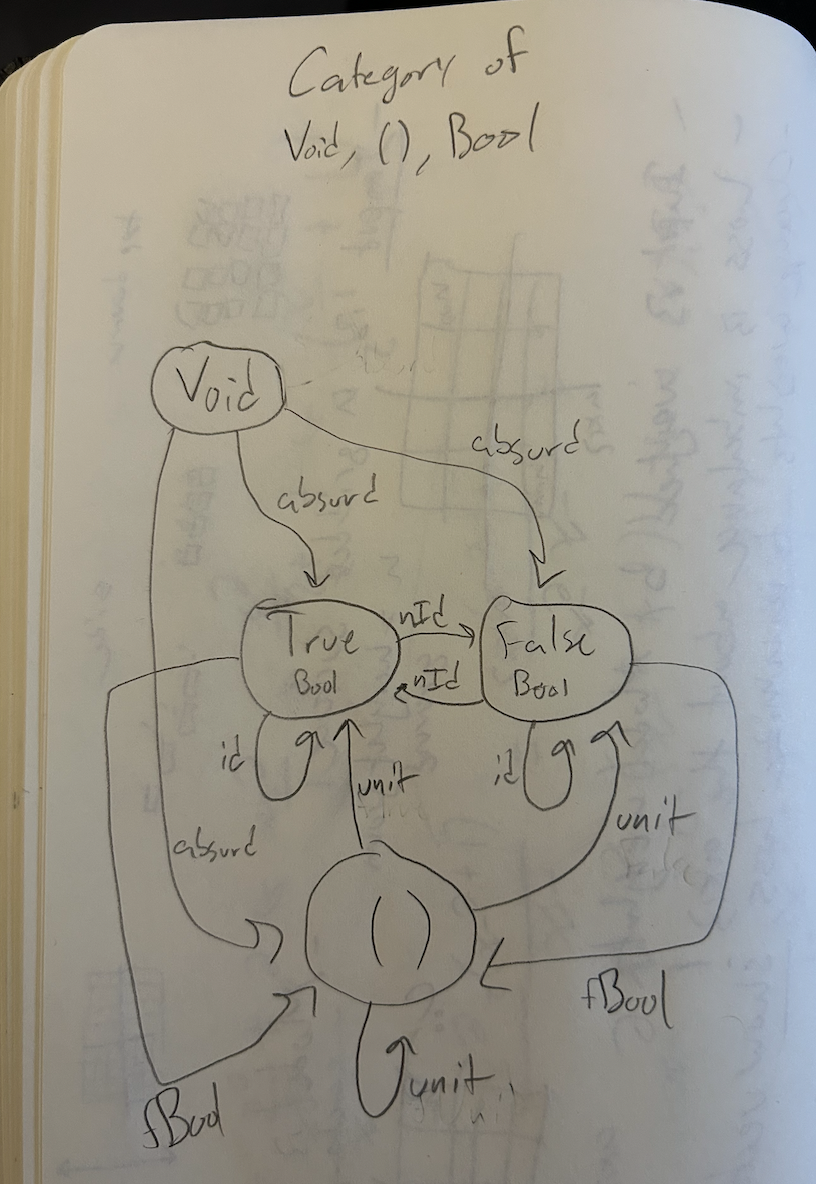 Category of
Void, (), Bool
Void
absurd
absurd
True
Bool
nId
nId
False
Bool
id
unit
id
unit
absurd
()
fBool
fBool
unit